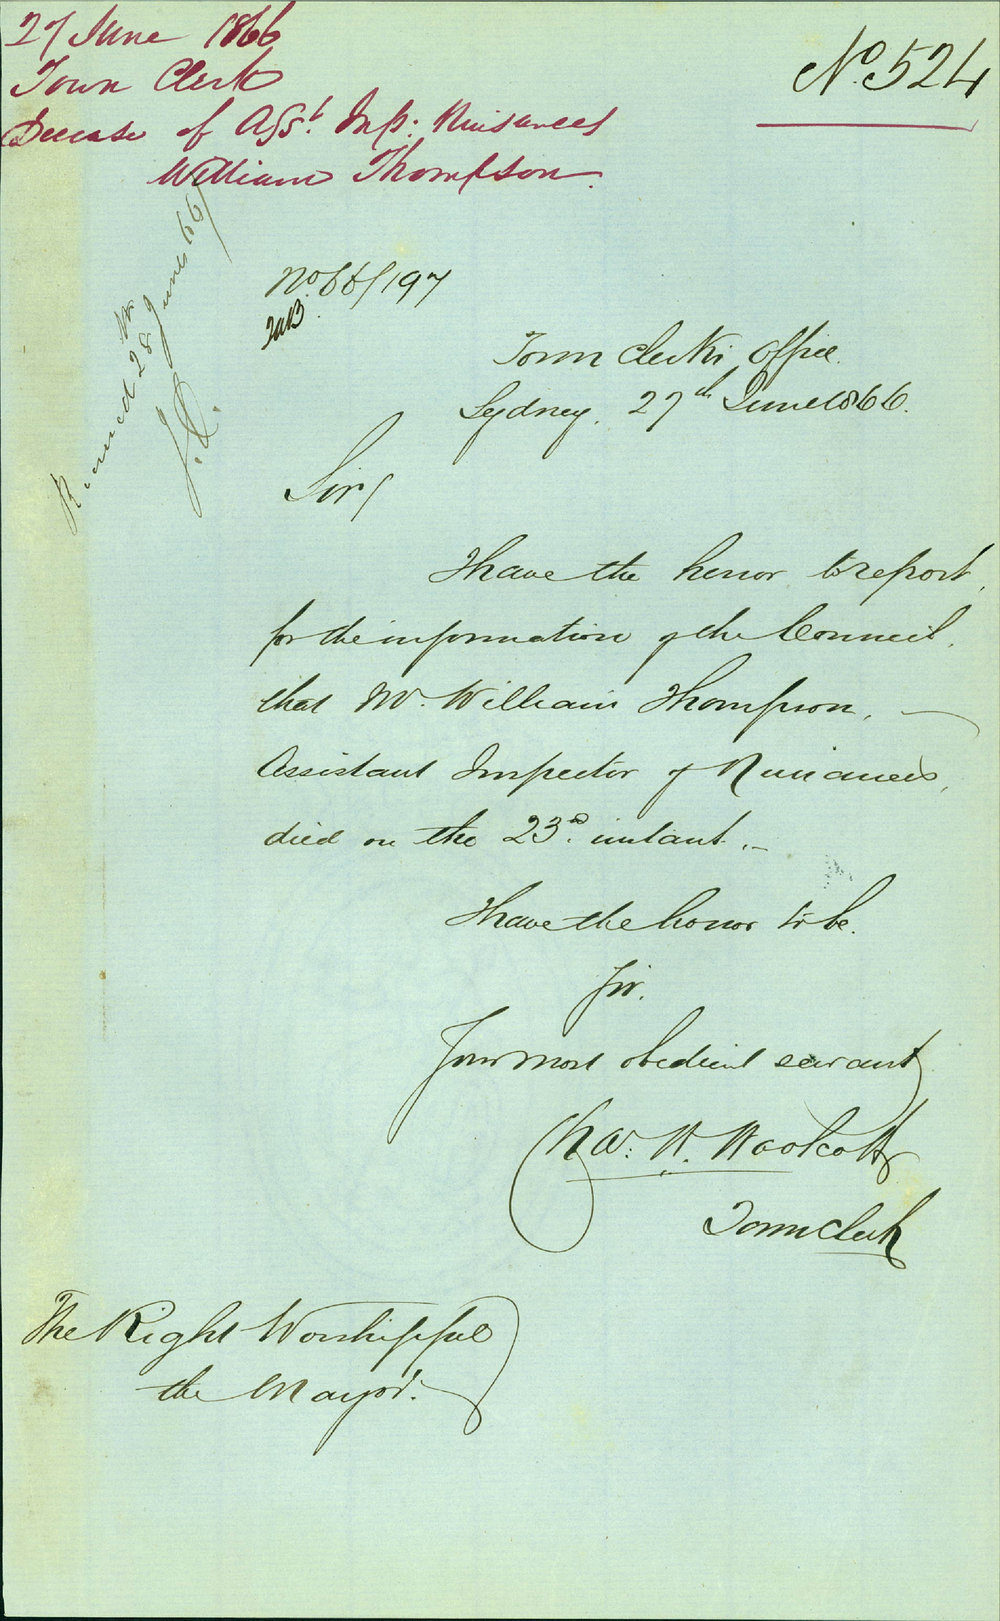 27 June 1866
Town Clerk
Decease of Asst. Insp: Nuisances
William Thompson.
No. 524
Received 28 June 66
No. 66/197
Town Clerk's Office.
Sydney. 27th June 1866.
Sir/
I have the honor to report,
for the information of the Council,
that Mr. William Thompson, —
Assistant Inspector of Nuisances,
died on the 23rd. instant. —
I have the honor to be.
Sir.
Your most obedient servant
Chas. H. Woolcott
Town Clerk
The Right Worshipful
the Mayor.